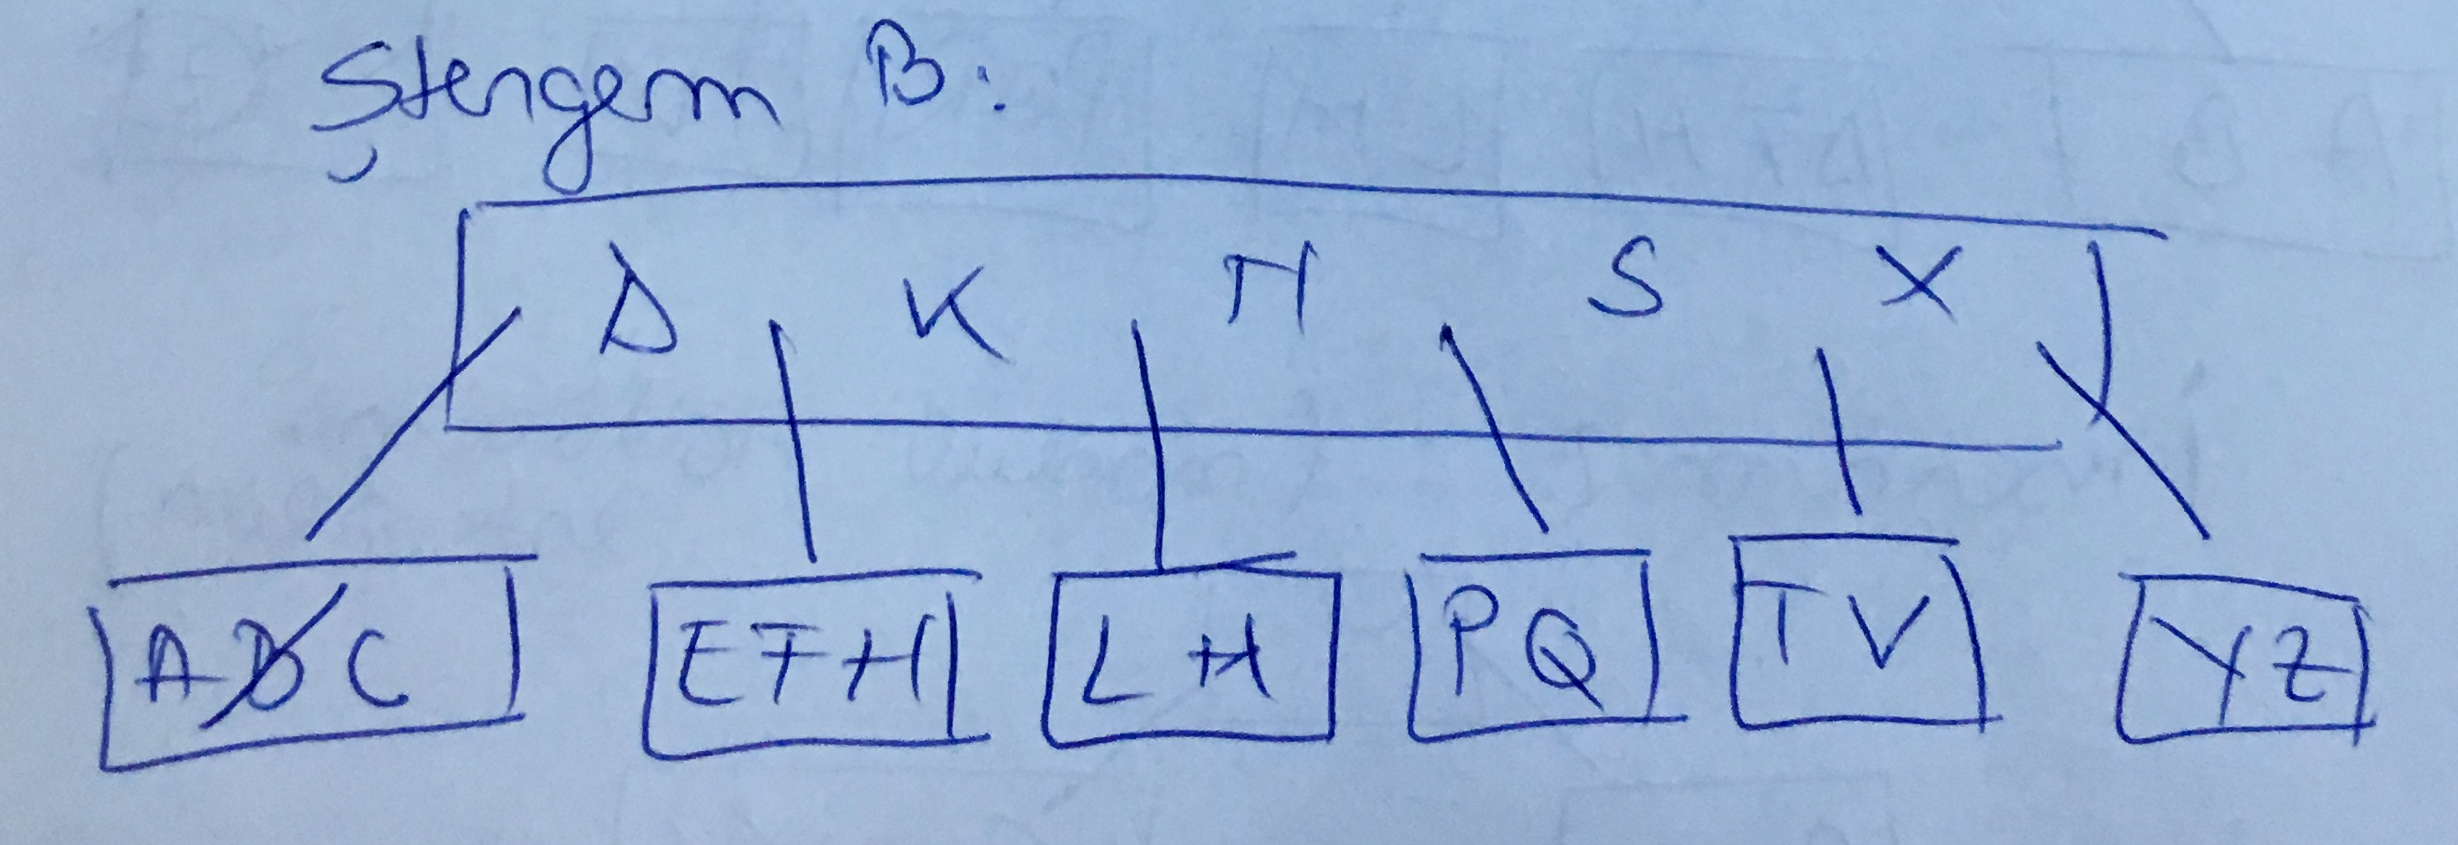 Ștergem B:
D K N S X
A B C E F H L M P Q T V Y Z